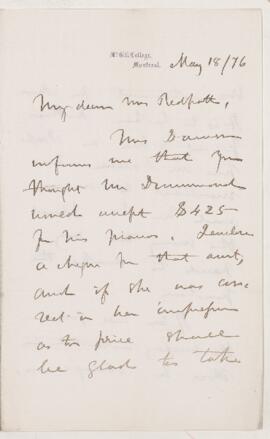 McGill College,
Montreal.
May 18/76
My dear Mrs Redpath,
Mrs Dawson
informs me that you
thought Mr Drummond
would accept $425
for his pianos. I enclose
a cheque for that amt,
and if she was cor-
rect in her impression
as to price shall
be glad to take